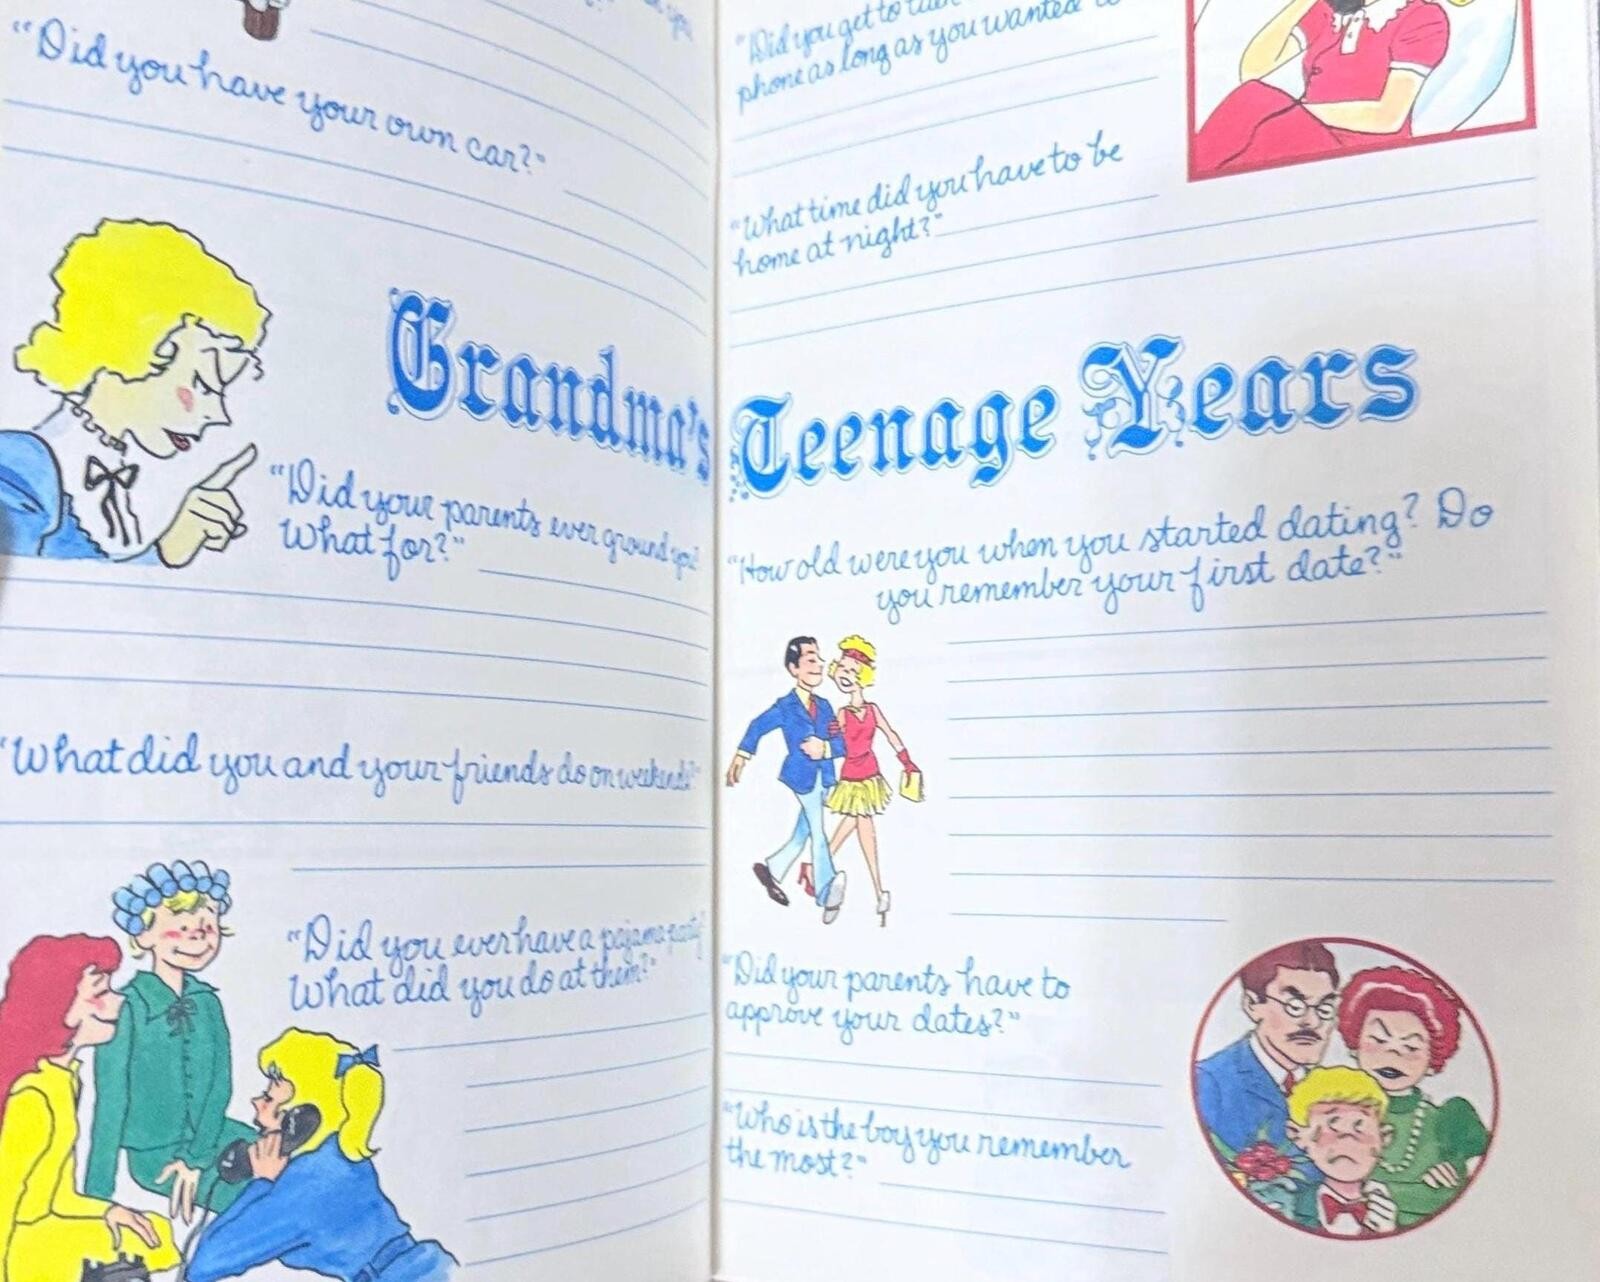 you
"Did you have your own car?"
Grandma's
"Did your parents ever ground you?
What for?"
"What did you and your friends do on weekends?"
"Did you ever have a pajama party?
What did you do at them?"
"Did you get to talk
phone as long as you wanted to
"What time did you have to be
home at night?"
Teenage Years
"How old were you when you started dating? Do
you remember your first date?"
"Did your parents have to
approve your dates?"
"Who is the boy you remember
the most?"